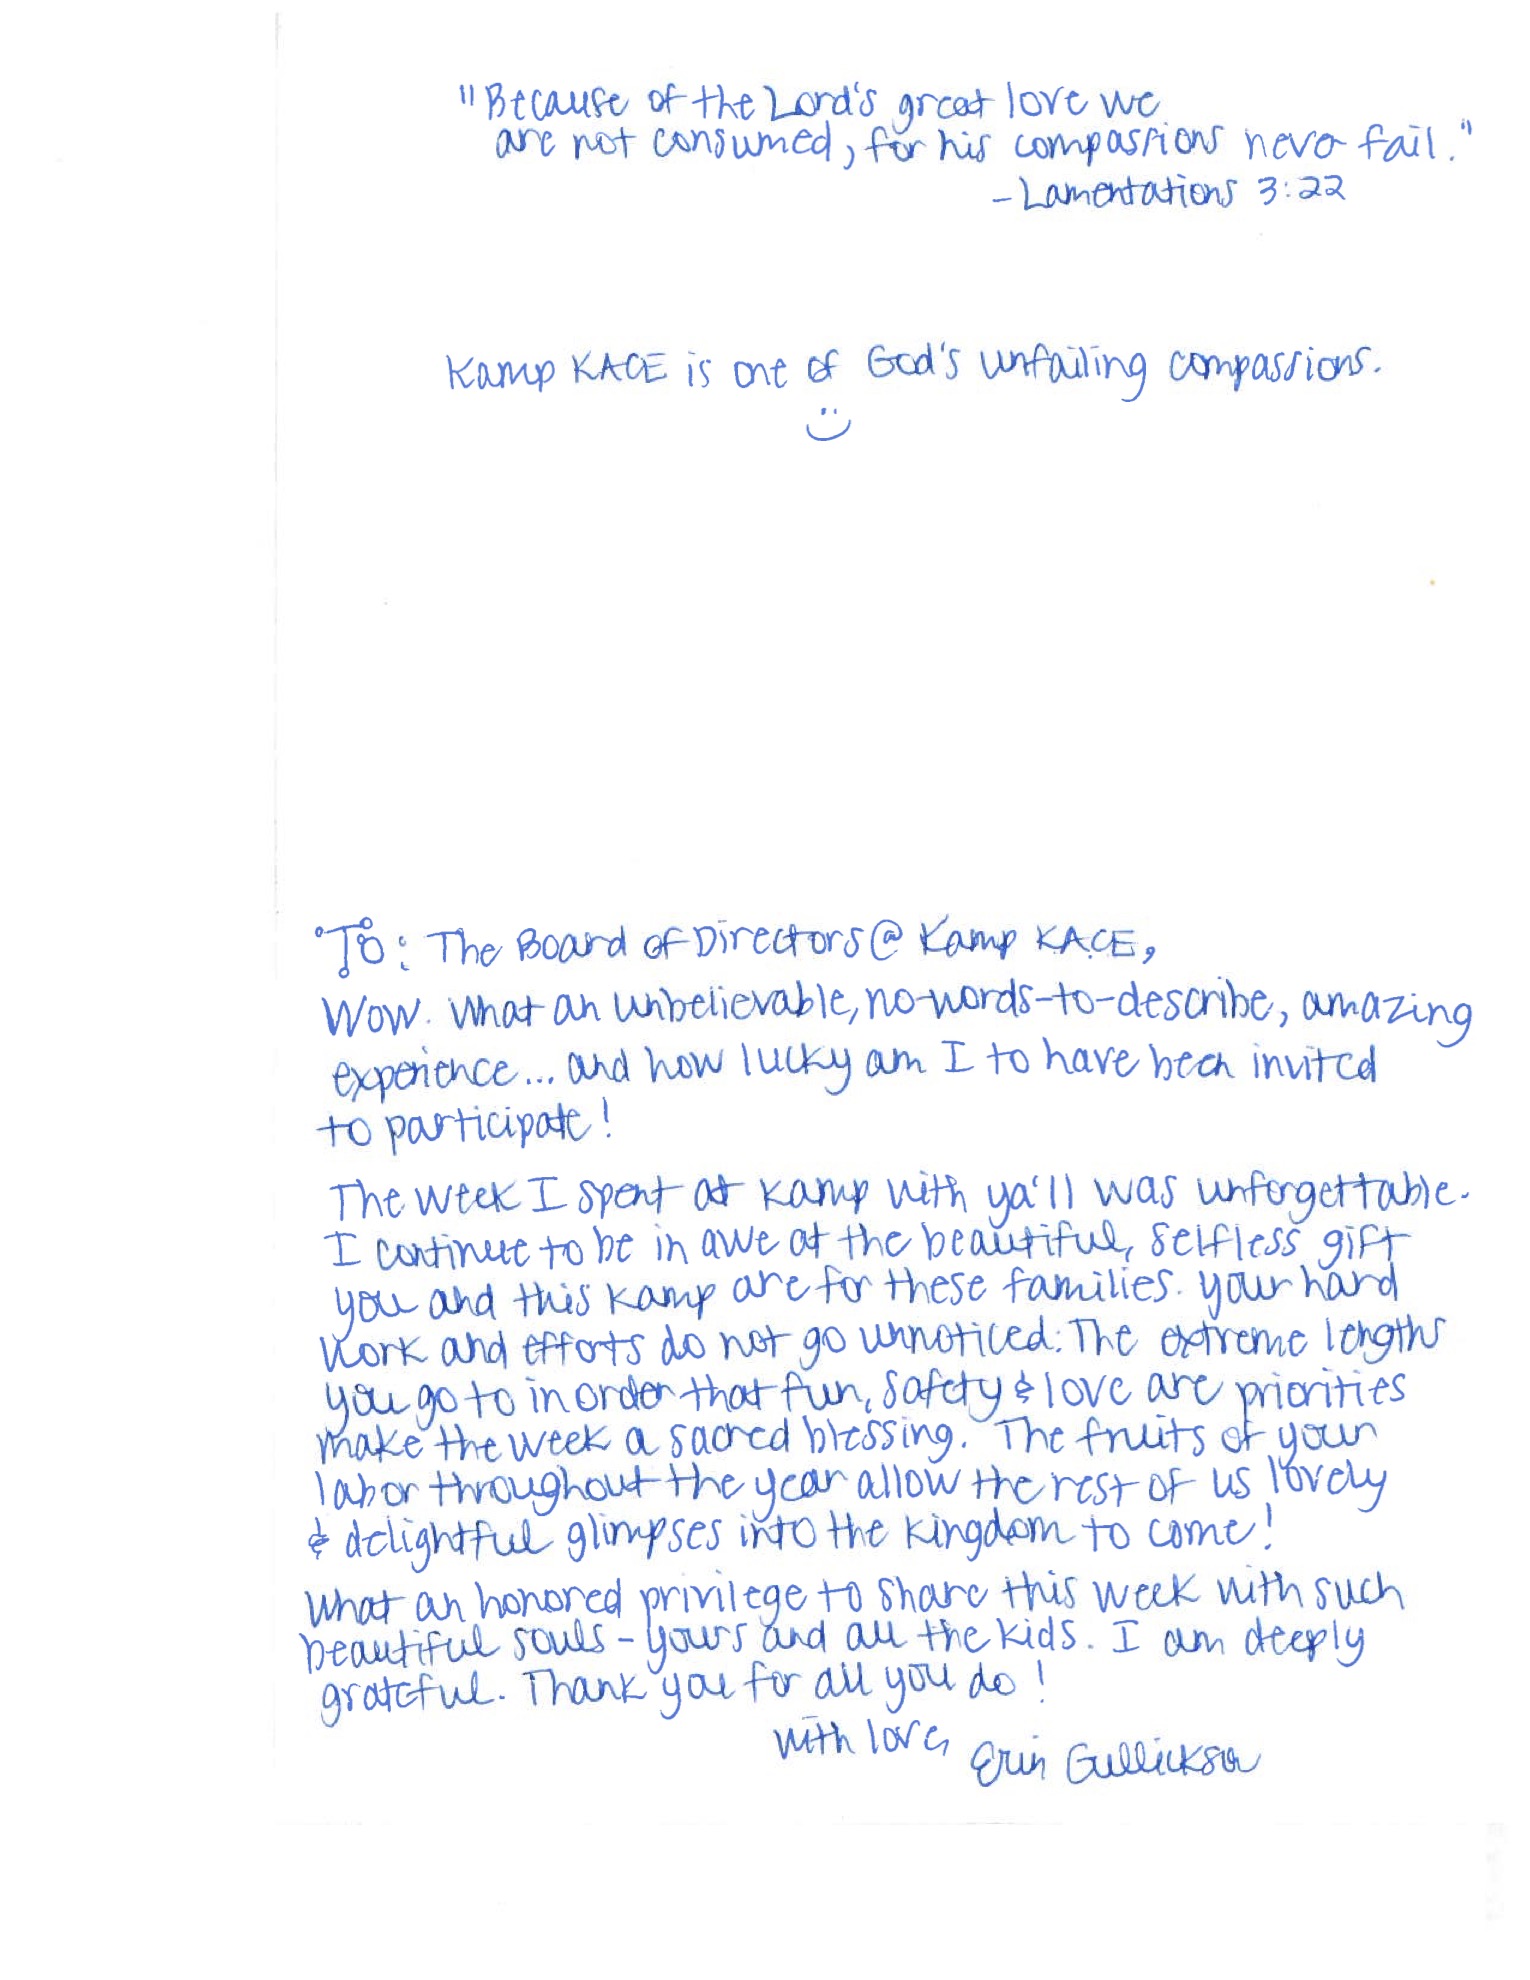 "Because of the Lord's great love we
are not consumed, for his compassions never fail."
- Lamentations 3:22
Kamp KACE is one of God's unfailing compassions.
To: The Board of Directors @ Kamp KACE,
Wow. What an unbelievable, no-words-to-describe, amazing
experience... and how lucky am I to have been invited
to participate!
The week I spent at Kamp with ya'll was unforgettable.
I continue to be in awe at the beautiful, selfless gift
you and this Kamp are for these families. Your hard
work and efforts do not go unnoticed: The extreme lengths
you go to in order that fun, safety & love are priorities
make the week a sacred blessing. The fruits of your
labor throughout the year allow the rest of us lovely
& delightful glimpses into the Kingdom to come!
What an honored privilege to share this week with such
beautiful souls - yours and all the kids. I am deeply
grateful. Thank you for all you do!
With love,
Erin Gullickson